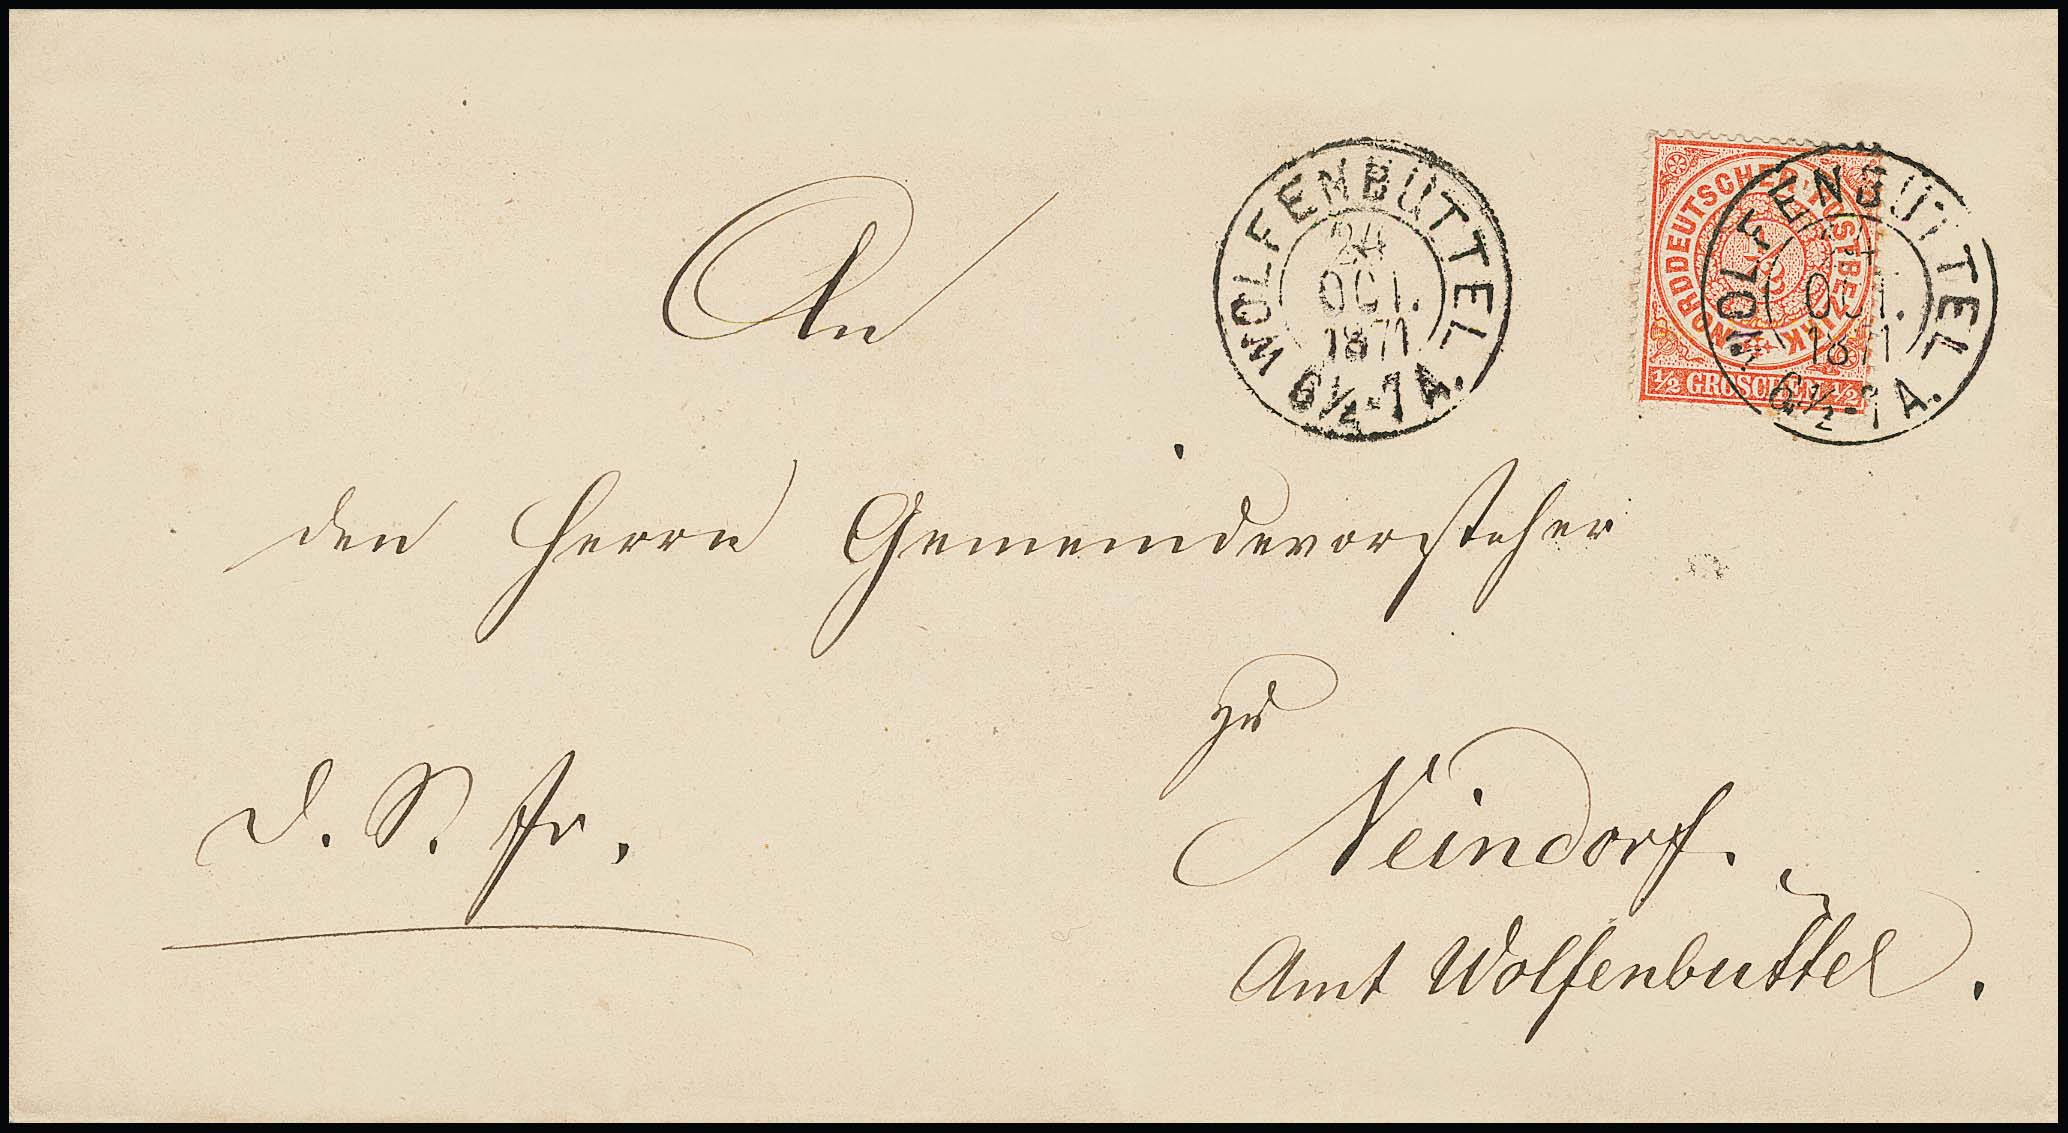 WOLFENBÜTTEL
24
OCT.
1871
6½-7 A.
NORDDEUTSCHER POSTBEZIRK
½ GROSCHEN ½
WOLFENBÜTTEL
24
OCT.
1871
6½-7 A.
An
den Herrn Gemeindevorsteher
zu
Neindorf.
Amt Wolfenbüttel.
d. S.